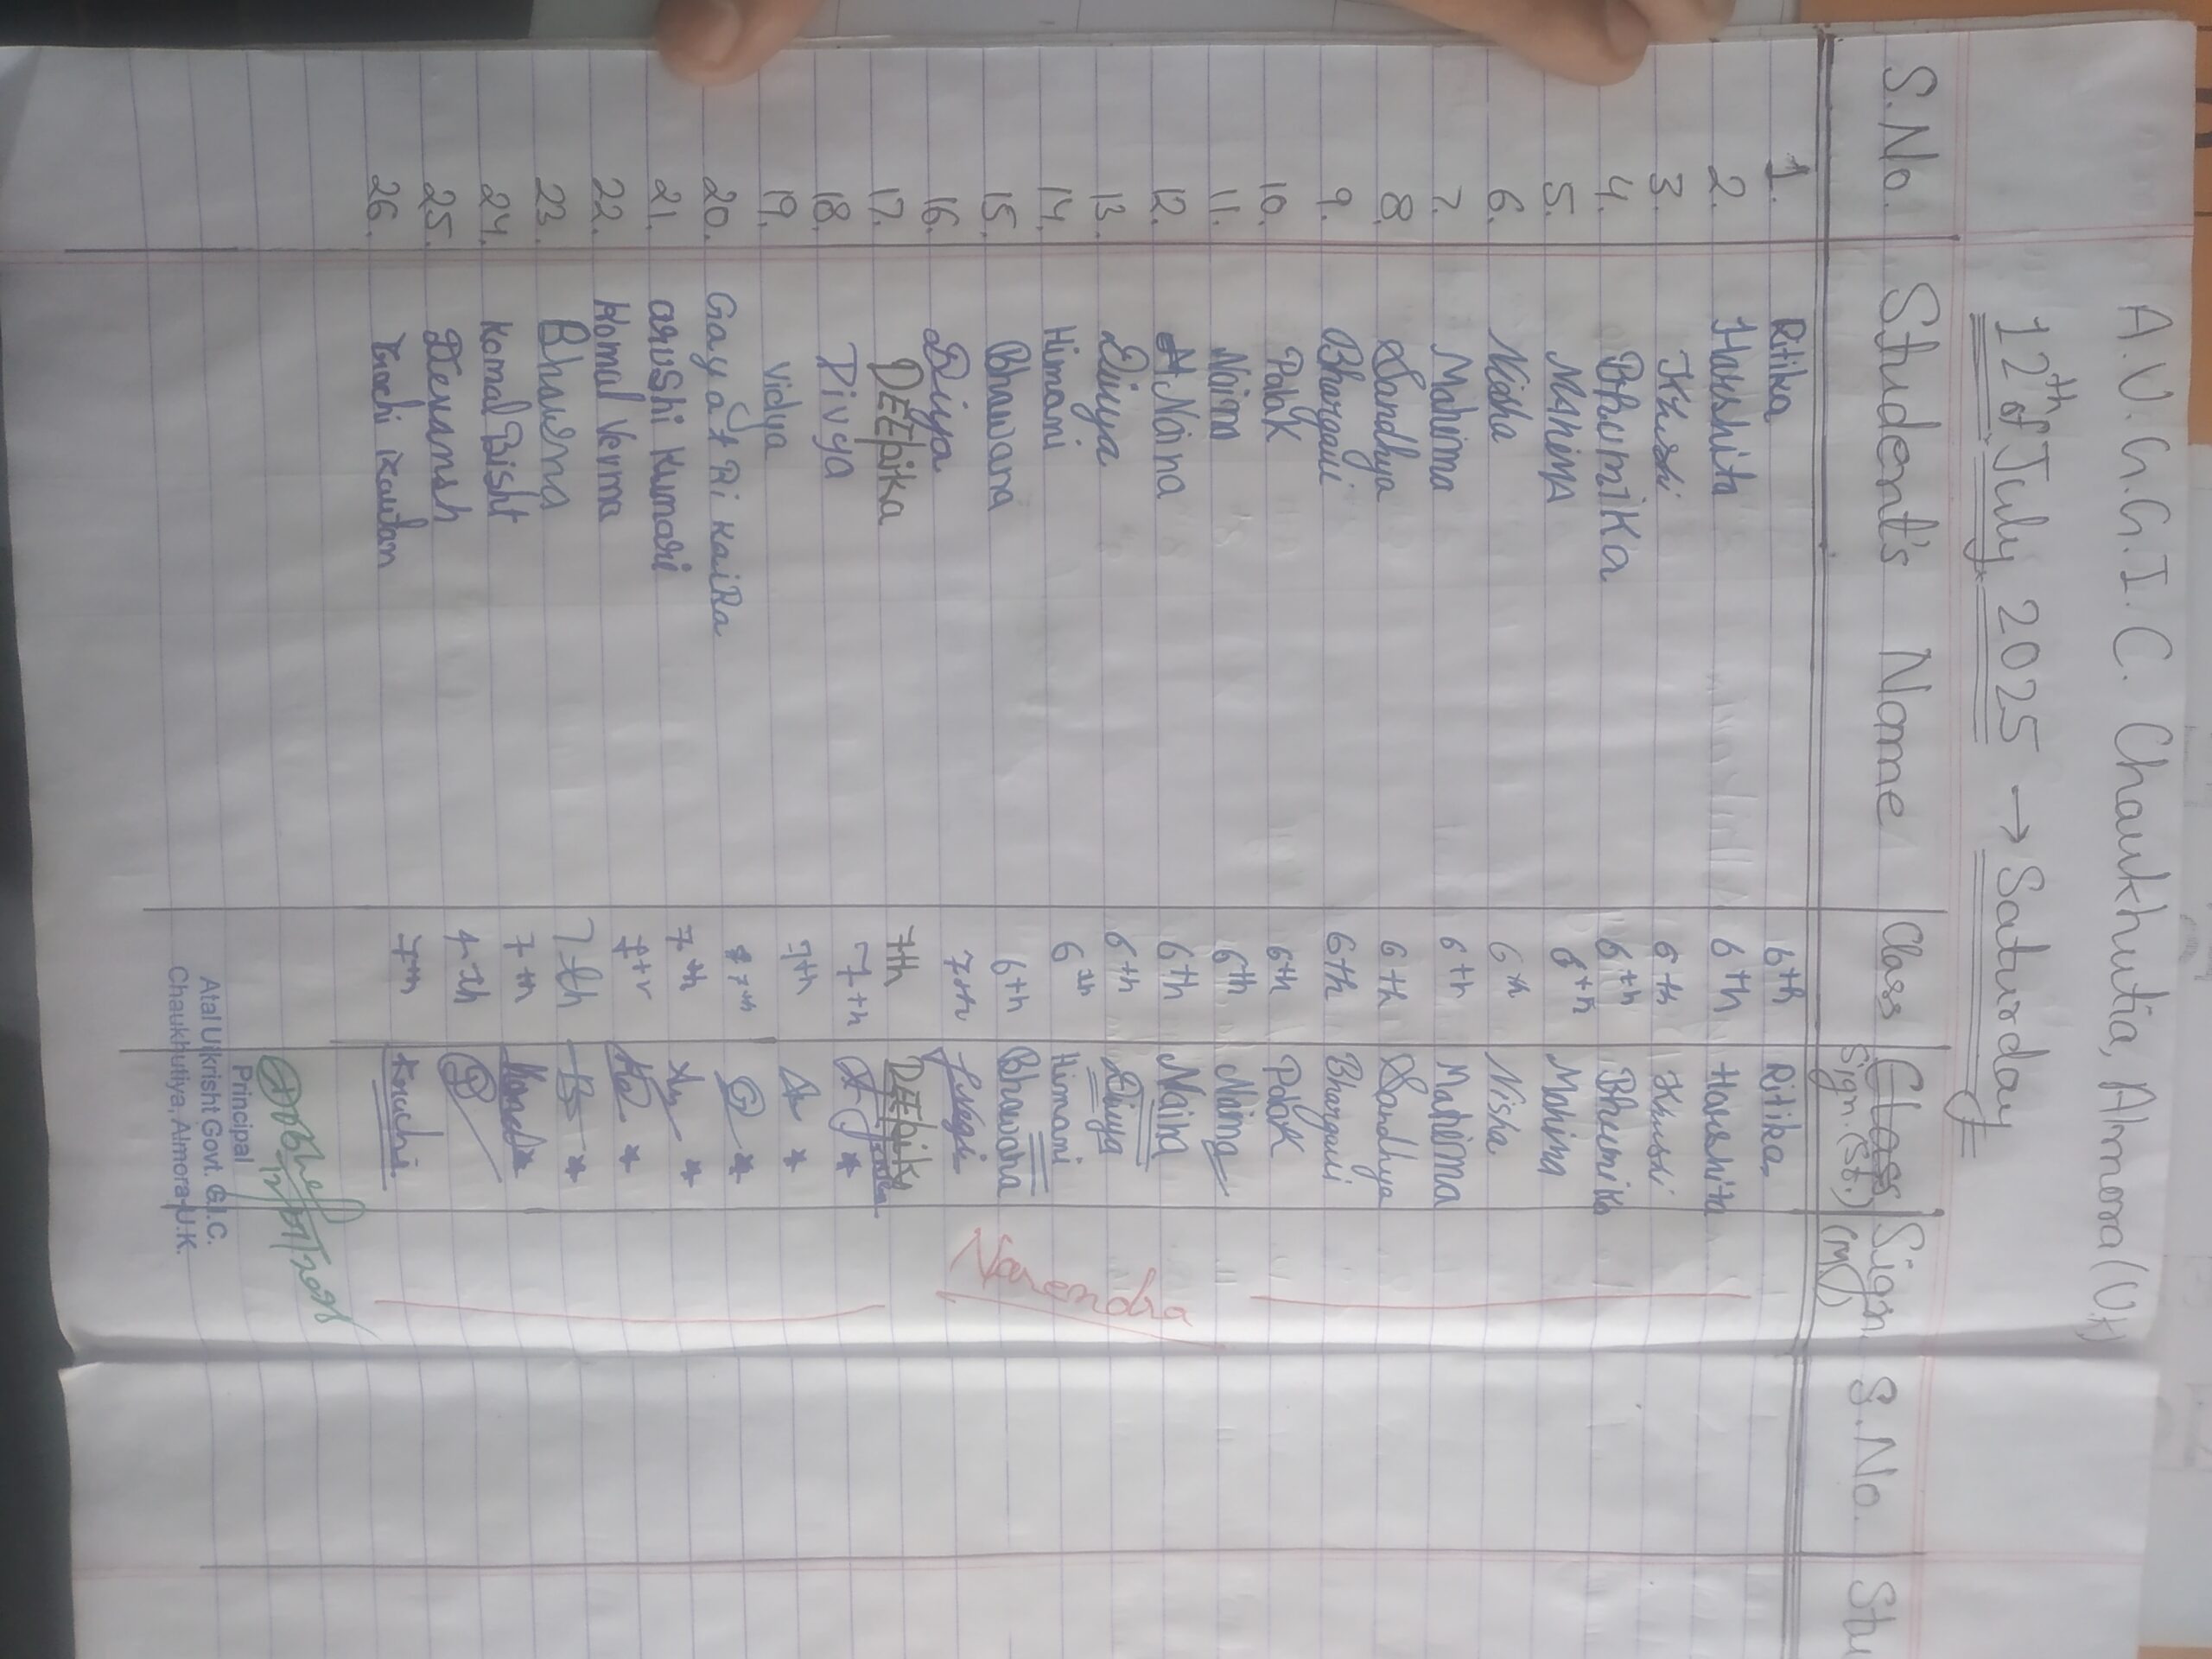 A.U.G.G.I.C. Chaukhutia, Almora (U.K)
12th of July 2025 → Saturday
S.No. Student's Name Class Sign. (St.) Sign. (M) S.No. Stu
1. Ritika 6th Ritika
2. Harshita 6th Harshita
3. Khushi 6th Khushi
4. BhumiKa 6th Bhumika
5. MAhimA 6th Mahima
6. Nisha 6th Nisha
7. Mahima 6th Mahima
8. Sandhya 6th Sandhya
9. Bhargavi 6th Bhargavi
10. Palak 6th Palak
11. Naina 6th Naina
12. Naina 6th Naina
13. Divya 6th Divya
14. Himani 6th Himani
15. Bhawana 6th Bhawana
16. Diya 7th
17. DEEpika 7th DEEpika
18. Divya 7th
19. Vidya 7th
20. GayatRi kaiRa 7th
21. aruShi Kumari 7th
22. Komal Verma 7th
23. Bhawna 7th
24. Komal Bisht 7th Komal
25. Devansh 7th
26. 7th
Narendra
Principal
Atal Utkrisht Govt. G.I.C.
Chaukhutiya, Almora-U.K.